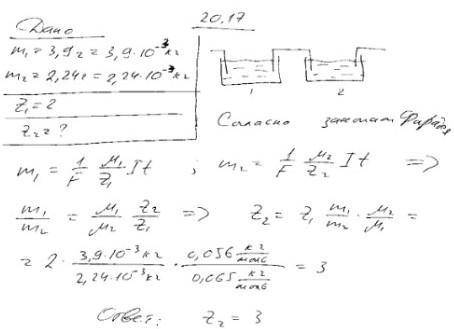 20.17
Дано
m₁ = 3,9г = 3,9·10⁻³ кг
m₂ = 2,24г = 2,24·10⁻³ кг
Z₁ = 2
Z₂ = ?
1 2
Согласно законам Фарадея
m₁ = 1/F μ₁/Z₁ It ; m₂ = 1/F μ₂/Z₂ It =>
m₁/m₂ = μ₁/μ₂ Z₂/Z₁ => Z₂ = Z₁ m₁/m₂ · μ₂/μ₁ =
= 2 · 3,9·10⁻³кг/2,24·10⁻³кг · 0,056 кг/моль/0,065 кг/моль = 3
Ответ: Z₂ = 3